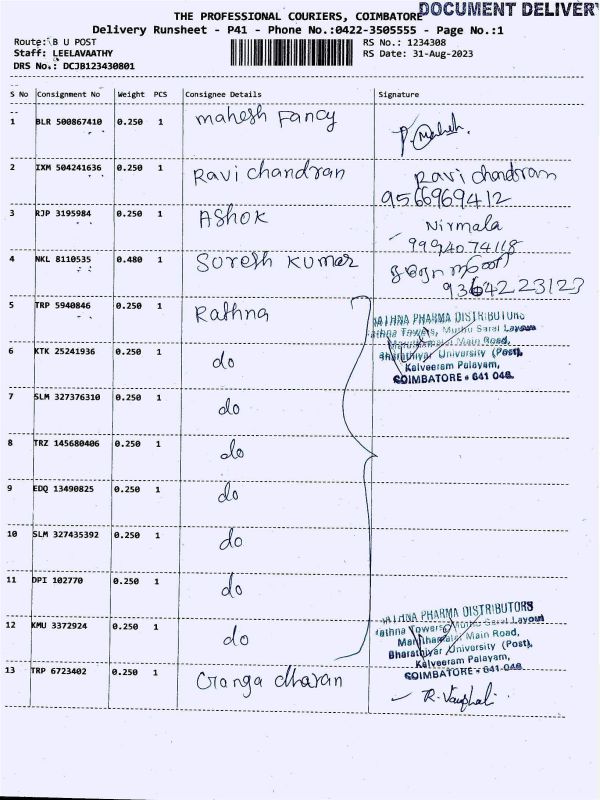 THE PROFESSIONAL COURIERS, COIMBATORE
DOCUMENT DELIVER
Delivery Runsheet - P41 - Phone No.:0422-3505555 - Page No.:1
Route: B U POST
RS No.: 1234308
Staff: LEELAVAATHY
RS Date: 31-Aug-2023
DRS No.: DCJB123430801
S No Consignment No Weight PCS Consignee Details Signature
1 BLR 500867410 0.250 1 Mahesh Fancy
P. Mahesh.
2 IXM 504241636 0.250 1 Ravi chandran Ravi chandran
9566969412
3 RJP 3195984 0.250 1 Ashok Nirmala
9994074118
4 NKL 8110535 0.480 1 Suresh Kumar
9364223123
5 TRP 5940846 0.250 1 Rathna
RATHNA PHARMA DISTRIBUTORS
Rathna Towers, Muthu Saral Layout
Maruthamalai Main Road,
Bharathiyar University (Post),
Kalveeram Palayam,
COIMBATORE - 641 046.
6 KTK 25241936 0.250 1 do
7 SLM 327376310 0.250 1 do
8 TRZ 145680406 0.250 1 do
9 EDQ 13490825 0.250 1 do
10 SLM 327435392 0.250 1 do
11 DPI 102770 0.250 1 do
12 KMU 3372924 0.250 1 do
RATHNA PHARMA DISTRIBUTORS
Rathna Towers, Muthu Saral Layout
Maruthamalai Main Road,
Bharathiyar University (Post),
Kalveeram Palayam,
COIMBATORE - 641 046.
13 TRP 6723402 0.250 1 Ganga dharan
R. Vaishali.